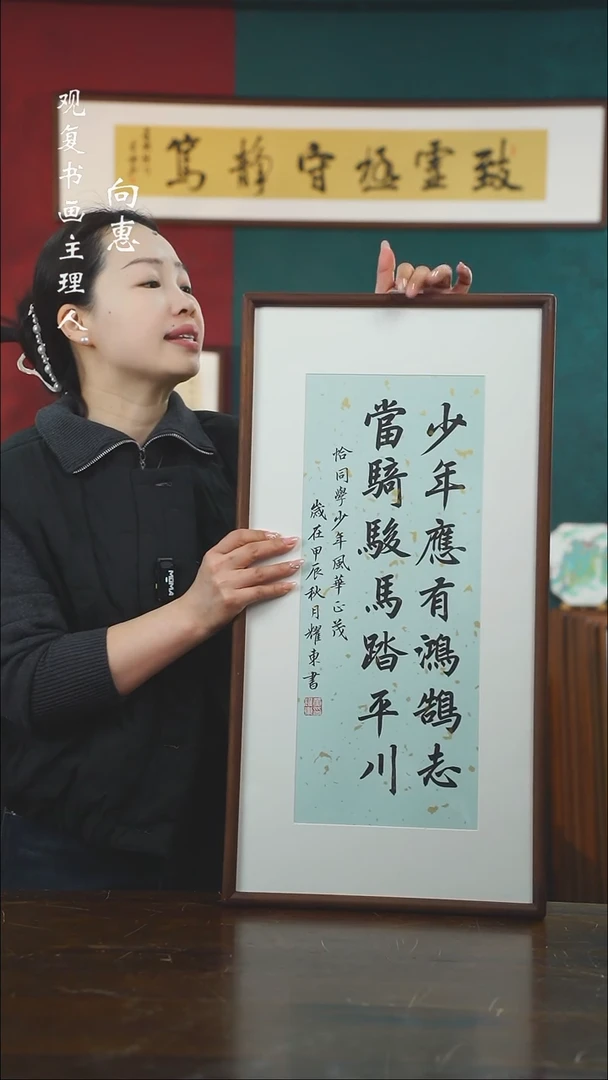 观复书画主理人
向惠
致虚极守静笃
少年應有鴻鵠志
當騎駿馬踏平川
恰同學少年風華正茂
歲在甲辰秋月耀東書